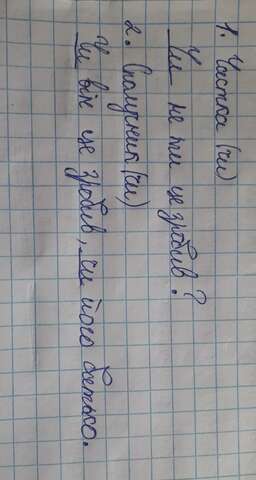 1. Частка (чи)
Чи не ти це зробив?
2. Сполучник (чи)
Чи він це зробив, чи його батько.